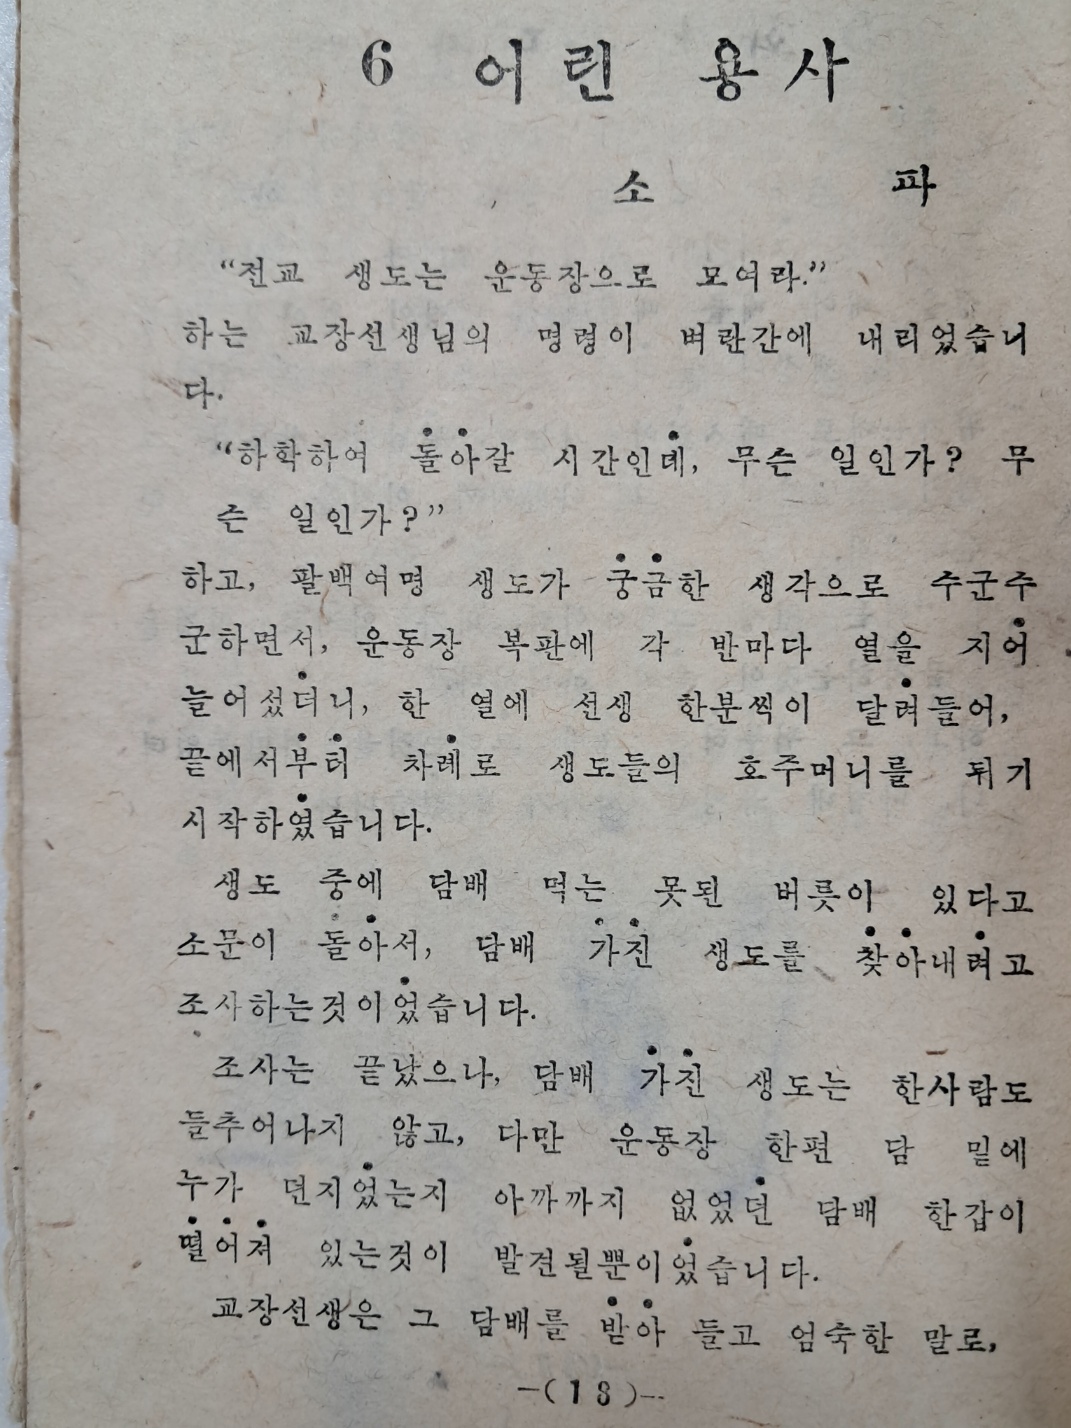 6 어린 용사
소 파
“전교 생도는 운동장으로 모여라.”
하는 교장선생님의 명령이 벼란간에 내리었습니
다.
“하학하여 돌아갈 시간인데, 무슨 일인가? 무
슨 일인가?”
하고, 팔백여명 생도가 궁금한 생각으로 수군수
군하면서, 운동장 복판에 각 반마다 열을 지어
늘어섰더니, 한 열에 선생 한분씩이 달려들어,
끝에서부터 차례로 생도들의 호주머니를 뒤기
시작하였습니다.
생도 중에 담배 먹는 못된 버릇이 있다고
소문이 돌아서, 담배 가진 생도를 찾아내려고
조사하는것이었습니다.
조사는 끝났으나, 담배 가진 생도는 한사람도
들추어나지 않고, 다만 운동장 한편 담 밑에
누가 던지었는지 아까까지 없었던 담배 한갑이
떨어져 있는것이 발견될뿐이었습니다.
교장선생은 그 담배를 받아 들고 엄숙한 말로,
—(18)—